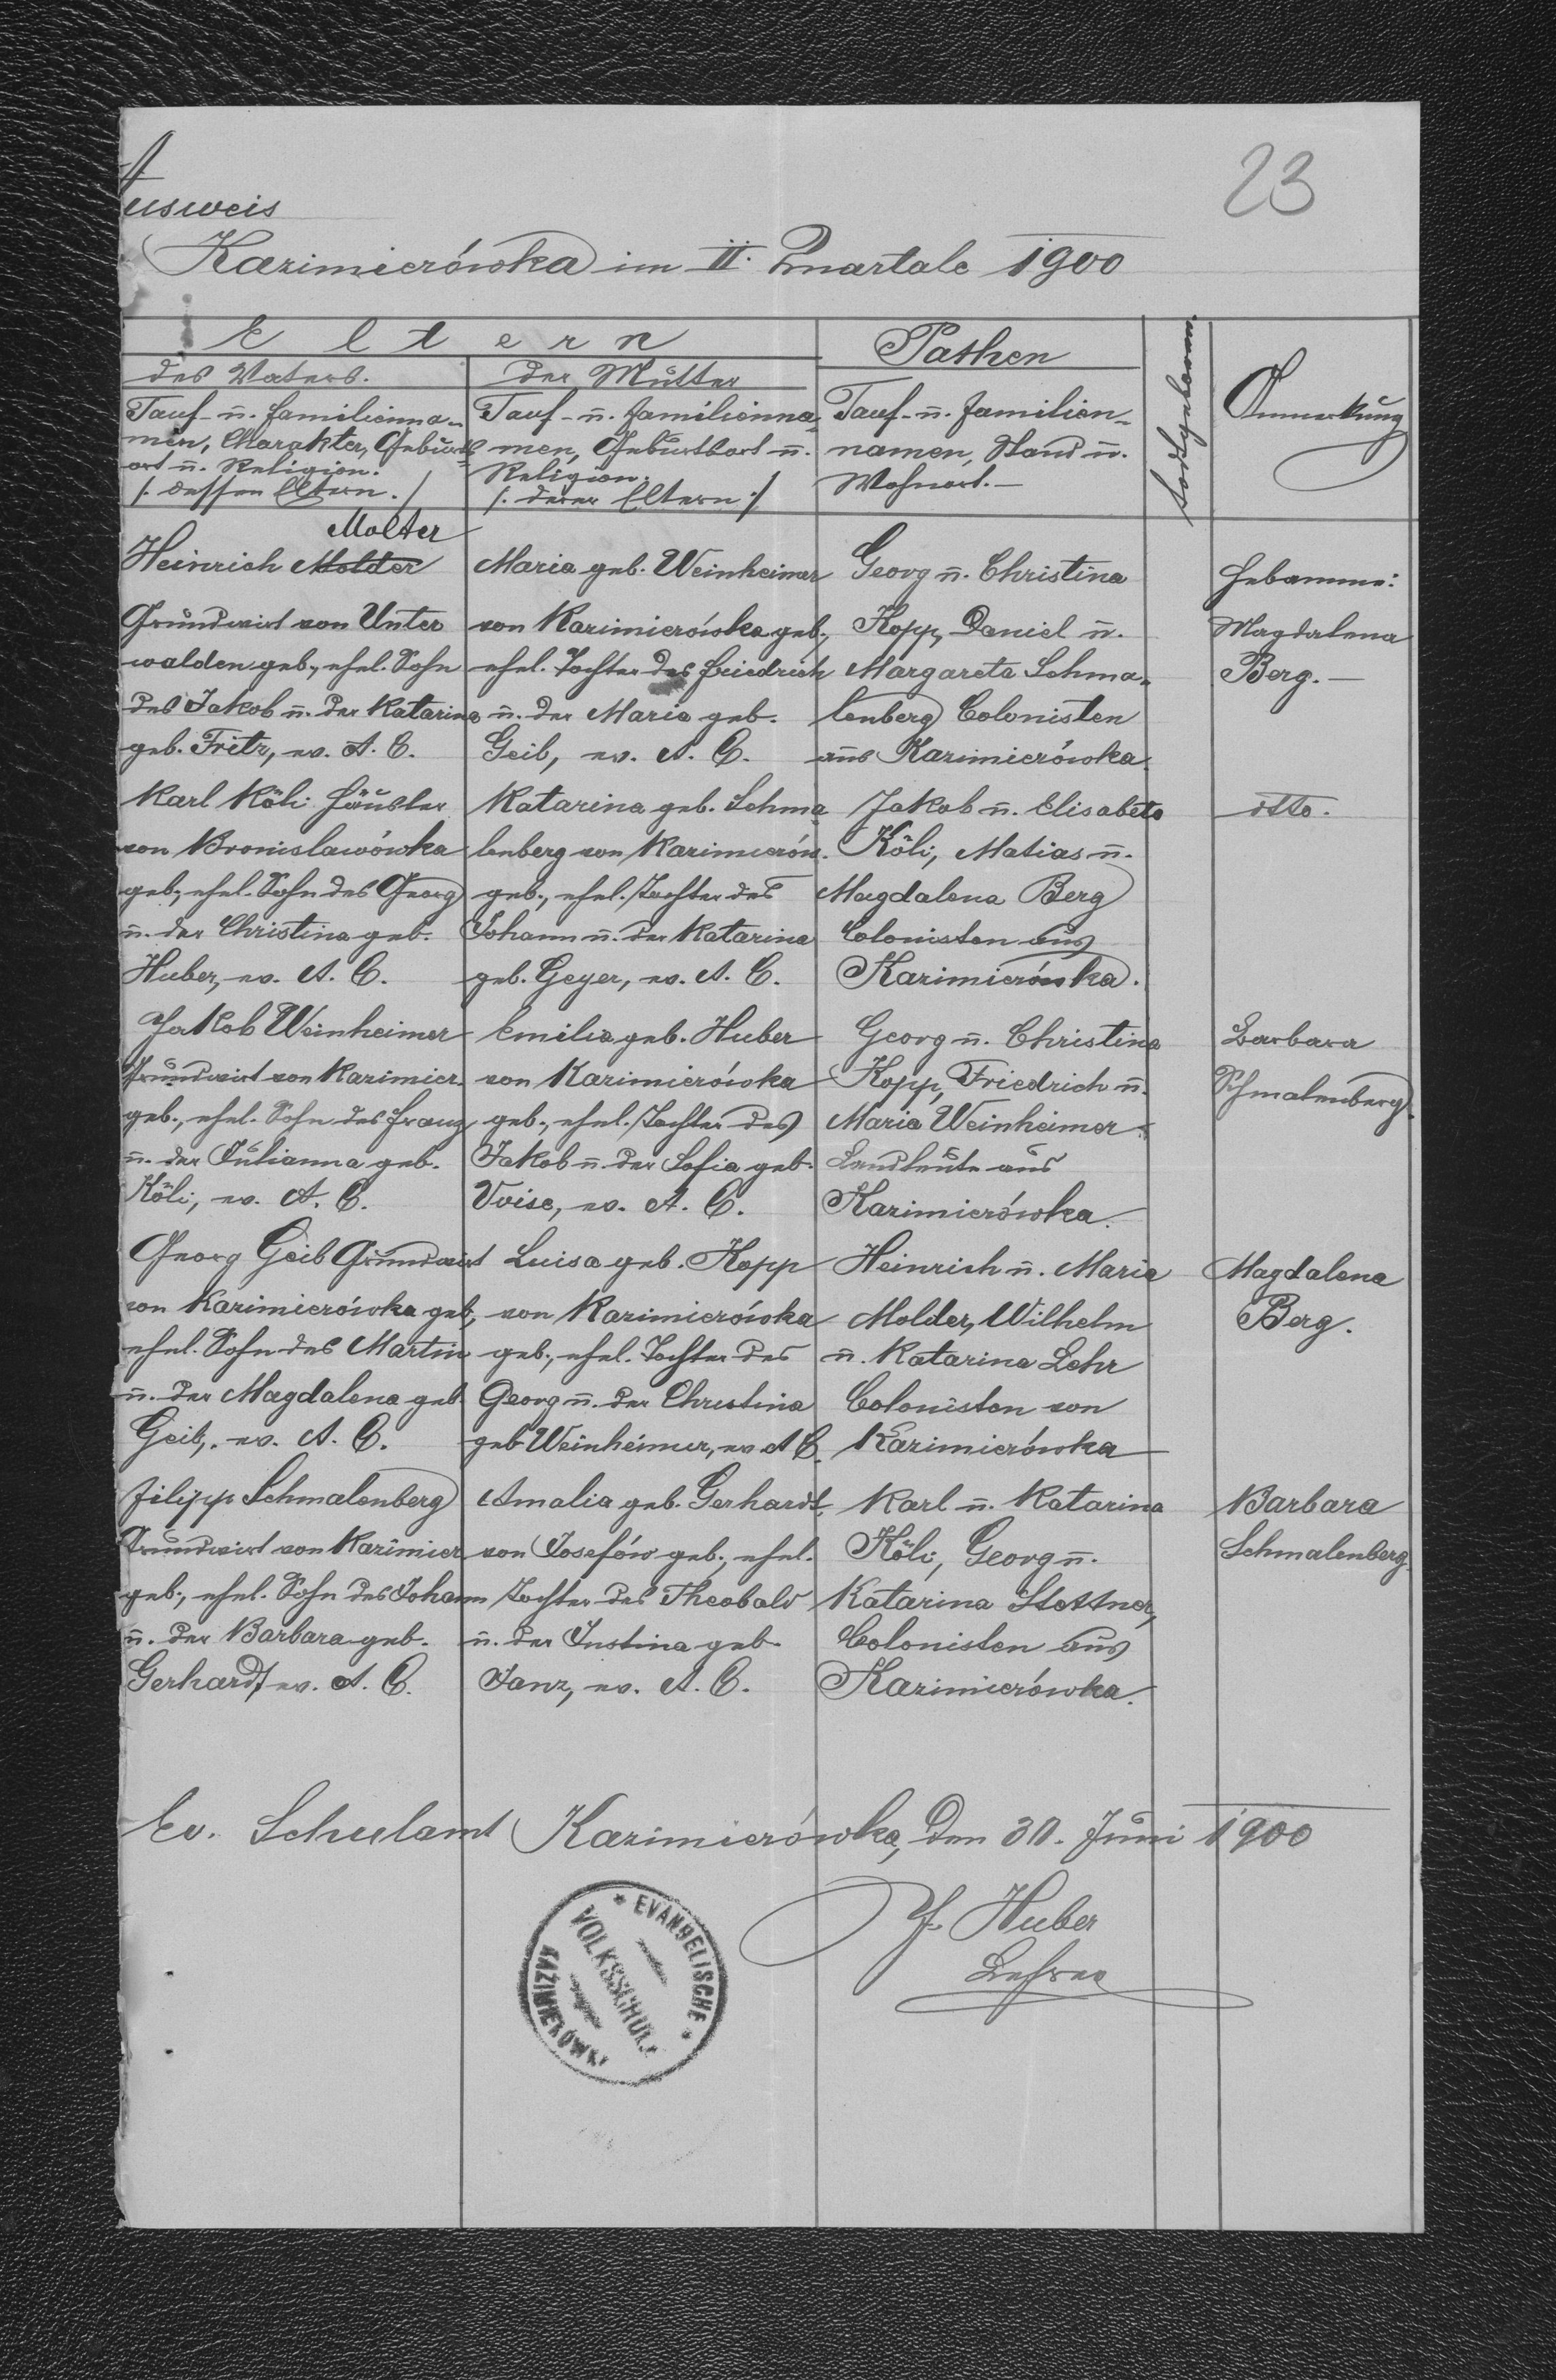 23
Ausweis
Kazimierówka im II. Quartale 1900
Eltern
des Vaters.
Tauf- u. Familienna-
men, Charakter, Geburts-
ort u. Religion.
/. dessen Eltern. /
Heinrich Molder Molter
Grundwirt von Unter
walden geb., ehel. Sohn
des Jakob u. der Katarina
geb. Fritz, ev. A. C.
Karl Köli Häusler
von Bronislawówka
geb., ehel. Sohn des Georg
u. der Christina geb.
Huber, ev. A. C.
Jakob Weinheimer
Grundwirt von Kazimier.
geb., ehel. Sohn des Franz
u. der Julianna geb.
Köli, ev. A. C.
Georg Geib Grundwirt
von Kazimierówka geb.,
ehel. Sohn des Martin
u. der Magdalena geb.
Geib, ev. A. C.
Filipp Schmalenberg
Grundwirt von Kazimier.
geb., ehel. Sohn des Johann
u. der Barbara geb.
Gerhardt ev. A. C.
der Mutter
Tauf- u. Familienna-
men, Geburtsort u.
Religion.
/. derer Eltern ./
Maria geb. Weinheimer
von Kazimierówka geb.,
ehel. Tochter des Friedrich
u. der Maria geb.
Geib, ev. A. C.
Katarina geb. Schma-
lenberg von Kazimierów.
geb., ehel. Tochter des
Johann u. der Katarina
geb. Geyer, ev. A. C.
Emilia geb. Huber
von Kazimierówka
geb., ehel. Tochter des
Jakob u. der Sofia geb.
Voise, ev. A. C.
Luisa geb. Kopp
von Kazimierówka
geb., ehel. Tochter des
Georg u. der Christina
geb Weinheimer, ev. A C.
Amalia geb. Gerhardt,
von Josefów geb., ehel.
Tochter des Theobald
u. der Justina geb.
Janz, ev. A. C.
Pathen
Tauf- u. Familien-
namen, Stand u.
Wohnort. —
Georg u. Christina
Kopp, Daniel u.
Margareta Schma-
lenberg Colonisten
aus Kazimierówka.
Jakob u. Elisabeta
Köli, Matias u.
Magdalena Berg
Colonisten aus
Kazimierówka.
Georg u. Christina
Kopp, Friedrich u.
Maria Weinheimer.
Landleute aus
Kazimierówka.
Heinrich u. Maria
Molder, Wilhelm
u. Katarina Lehr
Colonisten von
Kazimierówka
Karl u. Katarina
Köli, Georg u.
Katarina Stettner,
Colonisten aus
Kazimierówka.
todtgeboren.
Anmerkung
Hebamme:
Magdalena
Berg. —
dtto.
Barbara
Schmalenberg.
Magdalena
Berg.
Barbara
Schmalenberg.
Ev. Schulamt Kazimierówka, den 30. Juni 1900
J. Huber
Lehrer
* EVANGELISCHE *
VOLKSSCHULE
KAZIMIERÓWKA